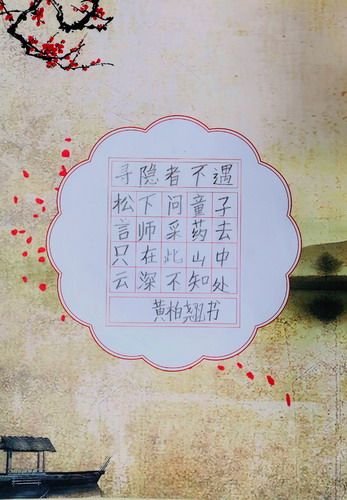 寻隐者不遇
松下问童子
言师采药去
只在此山中
云深不知处
黄柏翘书